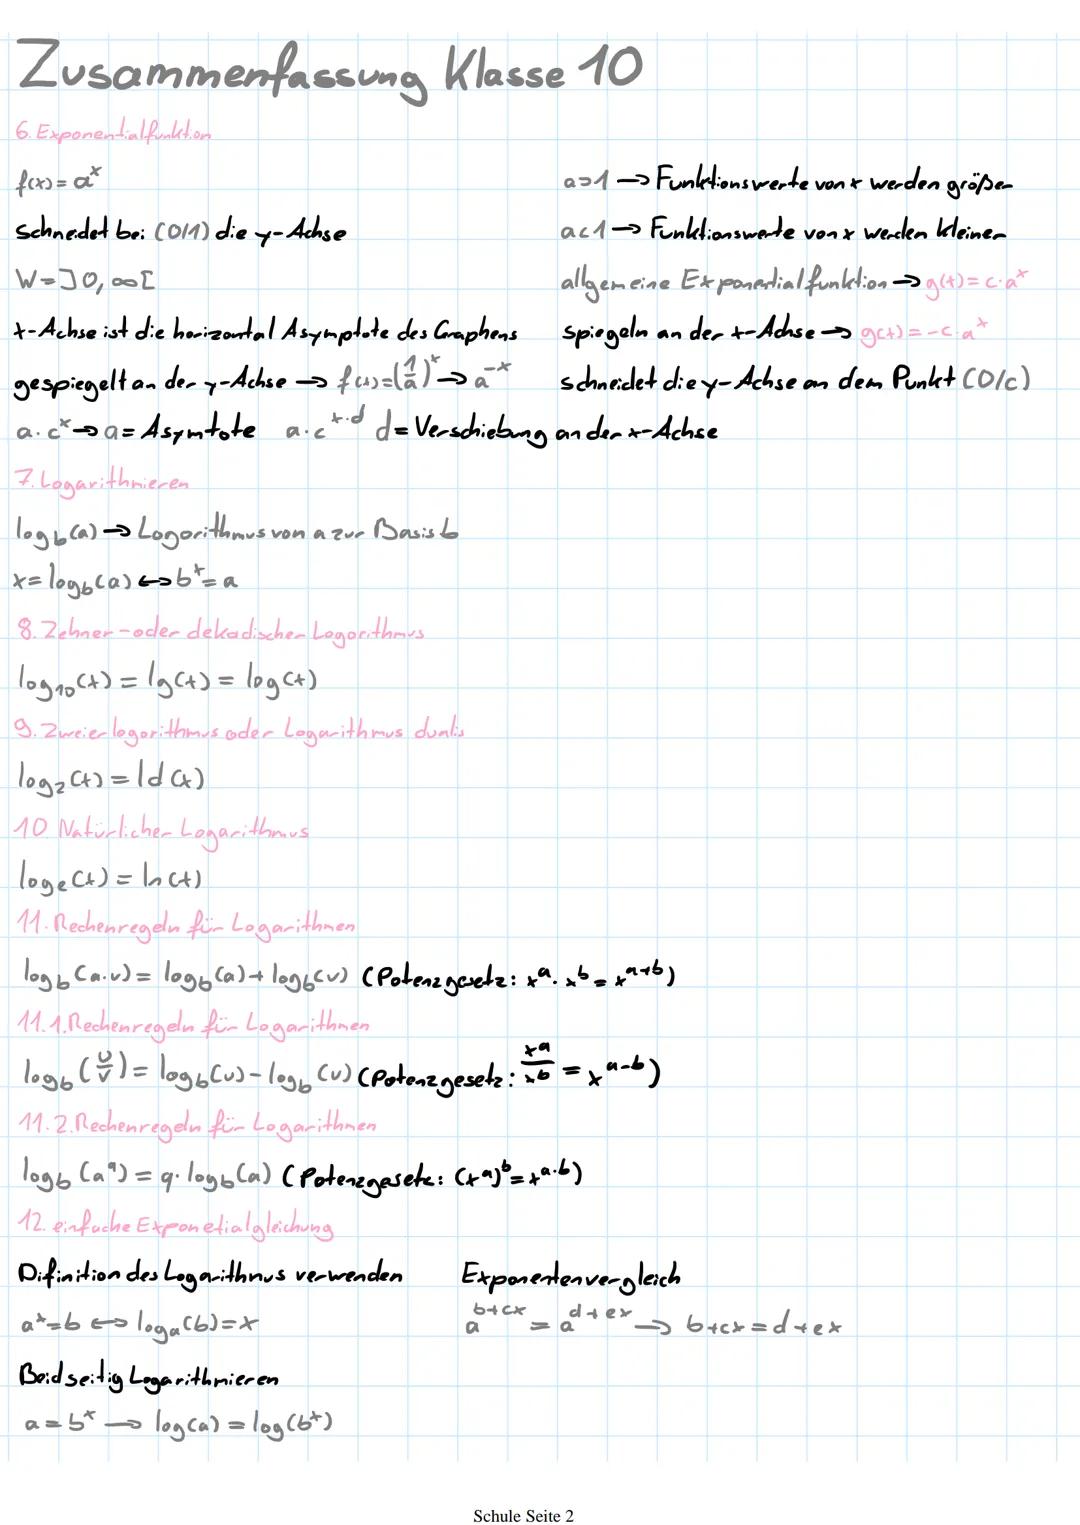 Zusammenfassung Klasse 10
6. Exponentialfunktion
f(x) = a^x
a>1 → Funktionswerte von x werden größer
schneidet bei (0/1) die y-Achse
a<1 → Funktionswerte von x werden kleiner
W=]0, ∞[
allgemeine Exponentialfunktion → g(x) = c·a^x
x-Achse ist die horizontal Asymptote des Graphens
spiegeln an der x-Achse → g(x) = -c·a^x
gespiegelt an der y-Achse → f(x)=(1/a)^x → a^-x
schneidet die y-Achse an dem Punkt (0/c)
a·c^x → a = Asymtote a·c^x·d d = Verschiebung an der x-Achse
7. Logarithmieren
log_b(a) → Logorithmus von a zur Basis b
x = log_b(a) ↔ b^x = a
8. Zehner-oder dekadischer Logorithmus
log_10(x) = lg(x) = log(x)
9. Zweierlogorithmus oder Logarithmus dualis
log_2(x) = ld(x)
10 Natürlicher Logarithmus
log_e(x) = ln(x)
11. Rechenregeln für Logarithmen
log_b(a·v) = log_b(a) + log_b(v) (Potenzgesetz: x^a · x^b = x^a+b)
11.1. Rechenregeln für Logarithmen
log_b(u/v) = log_b(u) - log_b(v) (Potenzgesetz: x^a/x^b = x^a-b)
11.2. Rechenregeln für Logarithmen
log_b(a^q) = q·log_b(a) (Potenzgesetz: (x^a)^b = x^a·b)
12. einfache Exponetialgleichung
Difinition des Logarithmus verwenden Exponentenvergleich
a^x = b ↔ log_a(b) = x a^b+cx = a^d+ex → b+cx = d+ex
Beidseitig Logarithmieren
a = b^x → log(a) = log(b^x)
Schule Seite 2